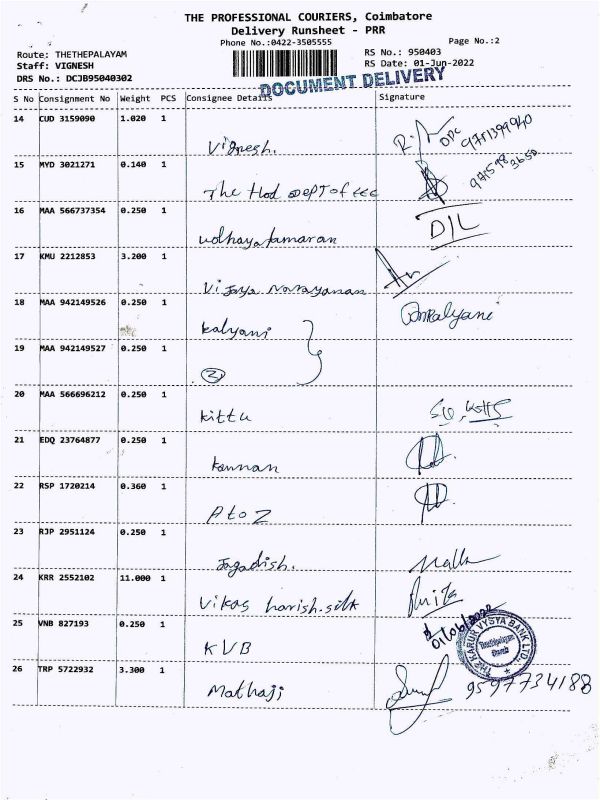 THE PROFESSIONAL COURIERS, Coimbatore
Delivery Runsheet - PRR
Phone No.:0422-3505555
Page No.:2
Route: THETHEPALAYAM
RS No.: 950403
Staff: VIGNESH
RS Date: 01-Jun-2022
DRS No.: DCJB95040302
DOCUMENT DELIVERY
S No Consignment No Weight PCS Consignee Details Signature
14 CUD 3159090 1.020 1
Vignesh.
9751399940
15 MYD 3021271 0.140 1
The Hod Dept of EEE
16 MAA 566737354 0.250 1
udhayatamaran
D/L
17 KMU 2212853 3.200 1
Vijaya Narayanan
18 MAA 942149526 0.250 1
kalyani
19 MAA 942149527 0.250 1
2
20 MAA 566696212 0.250 1
kittu
21 EDQ 23764877 0.250 1
kannan
22 RSP 1720214 0.360 1
A to Z
23 RJP 2951124 0.250 1
Jagadish.
24 KRR 2552102 11.000 1
Vikas harish.silk
25 VNB 827193 0.250 1
KVB
01/06/2022
THE KARUR VYSYA BANK LTD.
26 TRP 5722932 3.300 1
Mathaji
9597734188